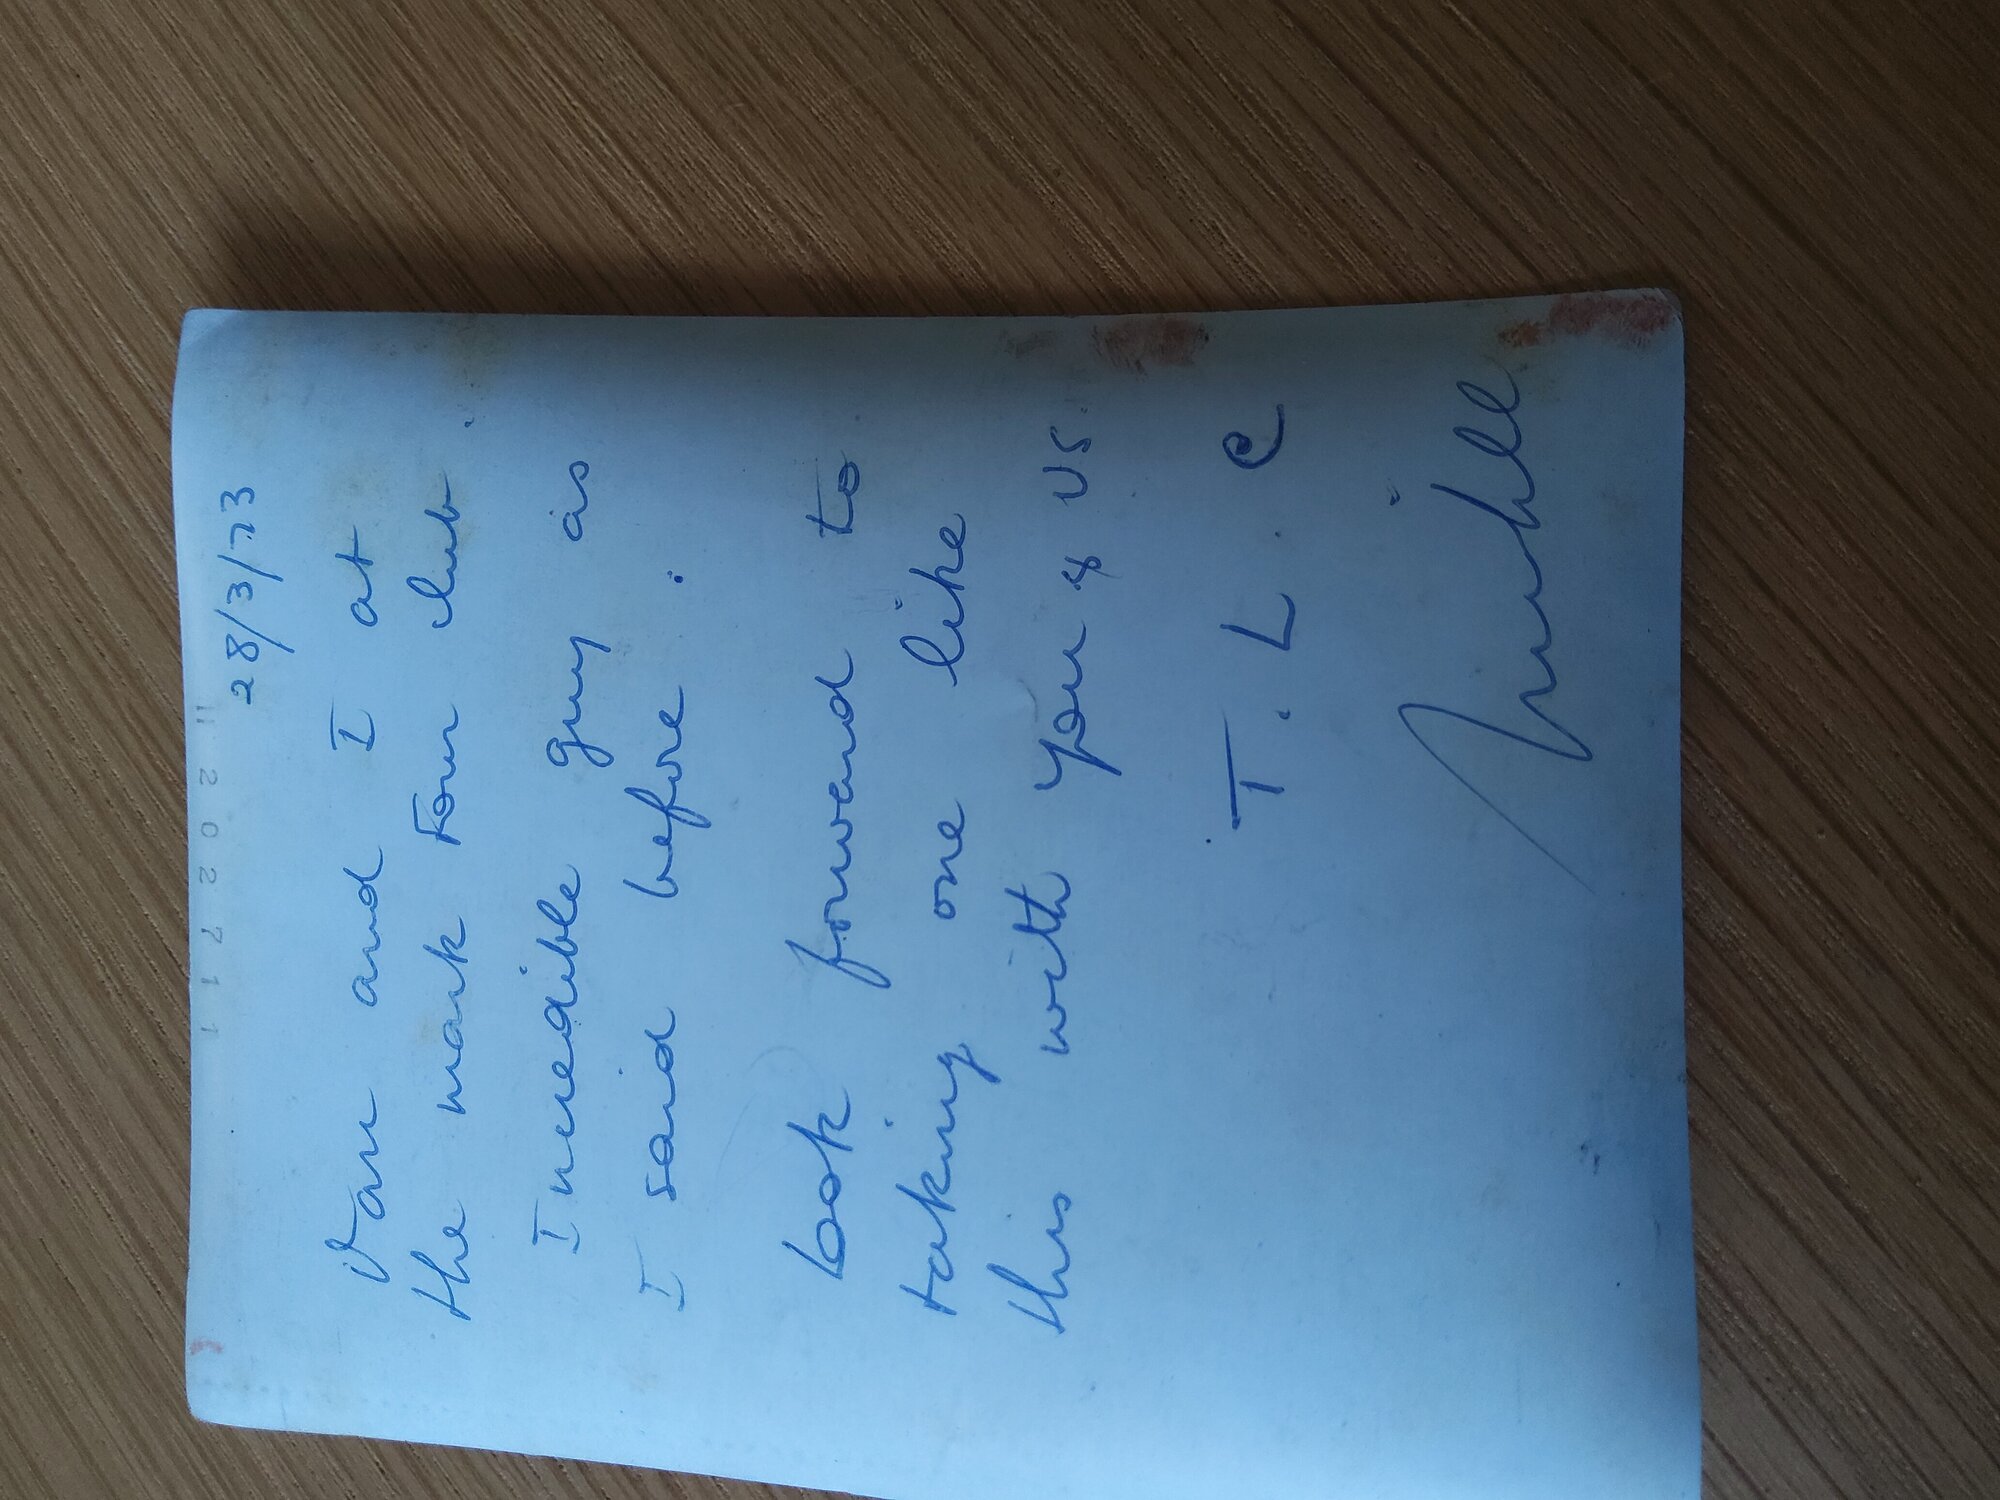 28/3/73
Van and I at
the mark Four club.
Incredible guy as
I said before.
Look forward to
taking one like
this with you & us.
T. L. C